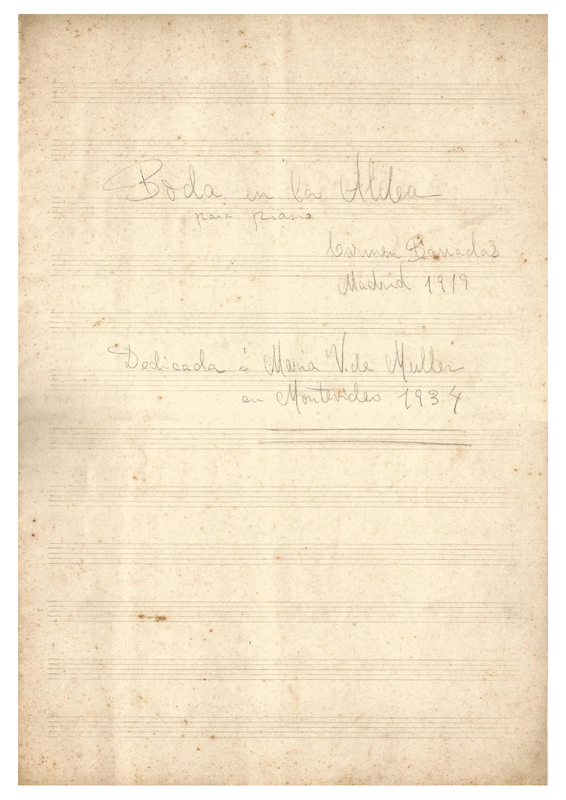 Boda en la Aldea
para piano
Carmen Barradas
Madrid 1919
Dedicada á Maria V. de Muller
en Montevideo 1934